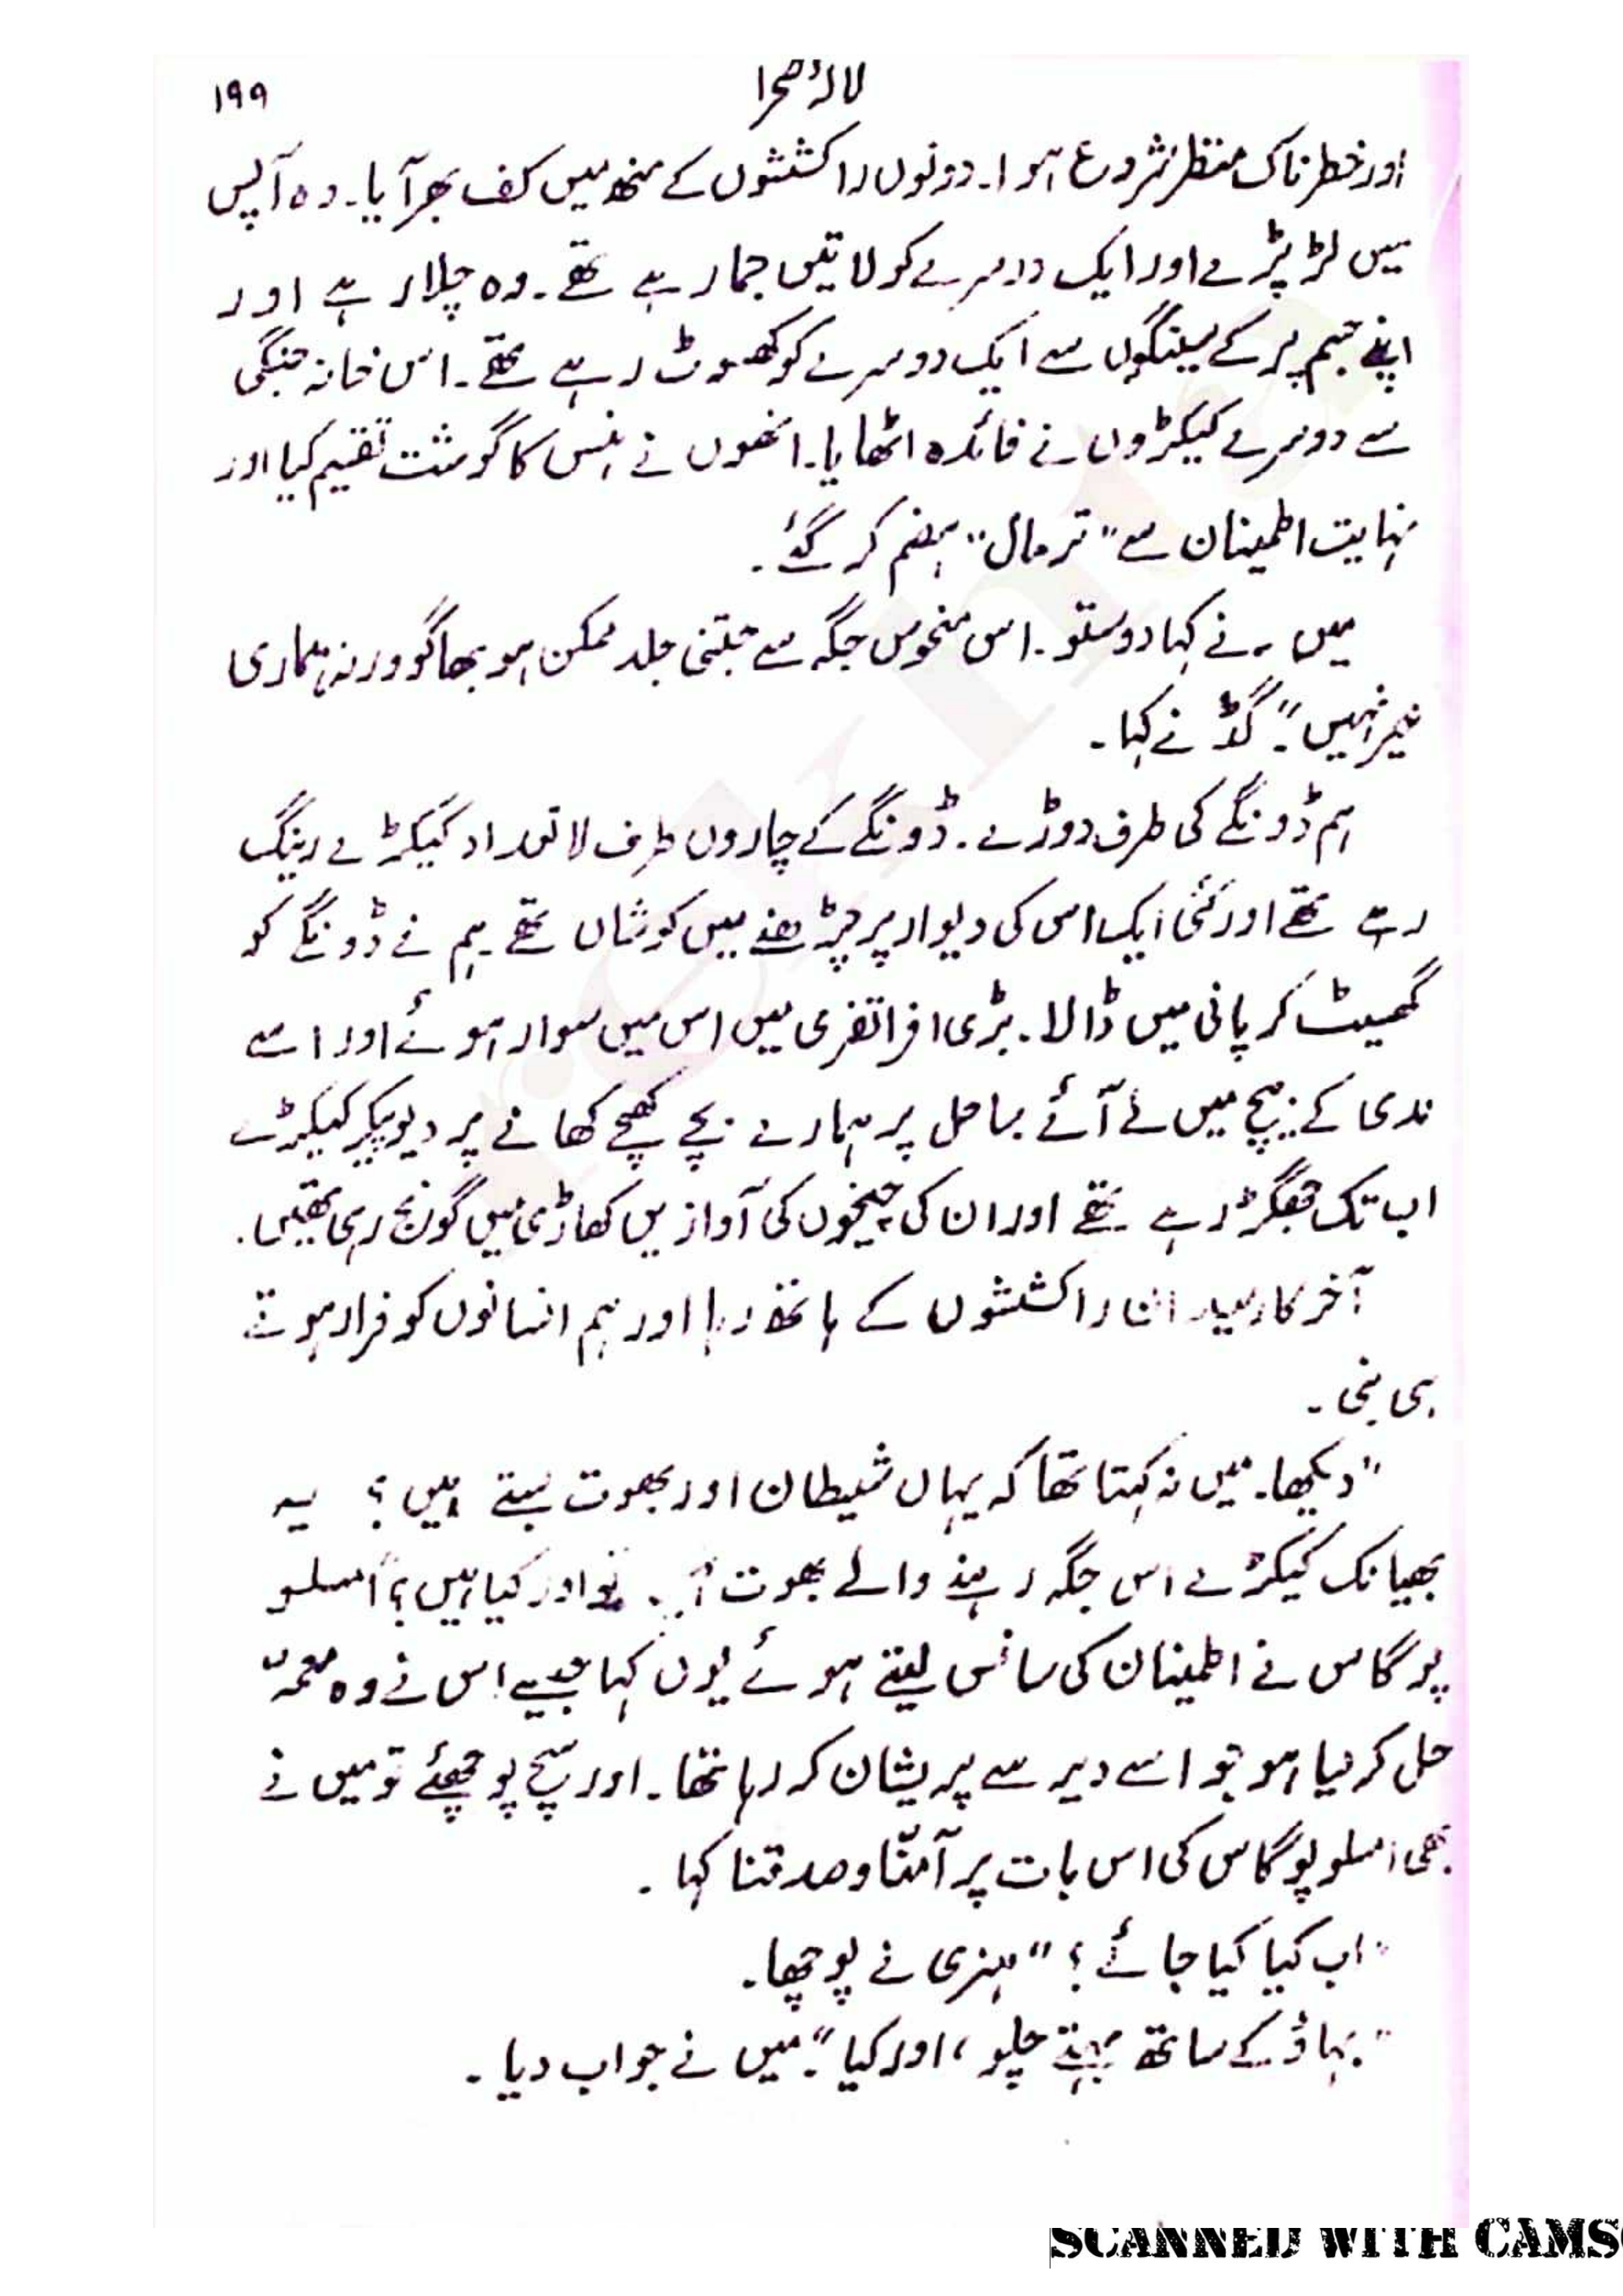 لالۂ صحرا
۱۹۹
اور خطرناک منظر شروع ہوا۔ دونوں راکششوں کے منھ میں کف بھر آیا۔ وہ آپس
میں لڑ پڑے اور ایک دوسرے کو لاتیں جما رہے تھے۔ وہ چلا رہے اور
اپنے جسم پر کے سینگوں سے ایک دوسرے کو کھسوٹ رہے تھے۔ اس خانہ جنگی
سے دوسرے کیکڑوں نے فائدہ اٹھایا۔ انھوں نے ہنس کا گوشت تقسیم کیا اور
نہایت اطمینان سے "تر مال" ہضم کر گئے۔
میں نے کہا دوستو۔ اس منحوس جگہ سے جتنی جلد ممکن ہو بھاگو ورنہ ہماری
خیر نہیں"۔ گڈ نے کہا۔
ہم ڈونگے کی طرف دوڑے۔ ڈونگے کے چاروں طرف لاتعداد کیکڑے رینگ
رہے تھے اور کئی ایک اس کی دیوار پر چڑھنے میں کوشاں تھے ہم نے ڈونگے کو
گھسیٹ کر پانی میں ڈالا۔ بڑی افراتفری میں اس میں سوار ہوئے اور اسے
ندی کے بیچ میں لے آئے ساحل پر ہمارے بچے کھچے کھانے پر دیوپیکر کیکڑے
اب تک جھگڑ رہے تھے اور ان کی چیخوں کی آوازیں کھاڑی میں گونج رہی تھیں۔
آخر کار میدان راکششوں کے ہاتھ رہا اور ہم انسانوں کو فرار ہوتے
ہی بنی۔
"دیکھا۔ میں نہ کہتا تھا کہ یہاں شیطان اور بھوت بستے ہیں؟ یہ
بھیانک کیکڑے اس جگہ رہنے والے بھوت تو اور کیا ہیں؟" امسلو
پوگاس نے اطمینان کی سانس لیتے ہوئے یوں کہا جیسے اس نے وہ معمہّ
حل کر لیا ہو جو اسے دیر سے پریشان کر رہا تھا۔ اور سچ پوچھئے تو میں نے
بھی امسلوپوگاس کی اس بات پر آمنّا و صدقنا کہا۔
"اب کیا کیا جائے؟" ہنری نے پوچھا۔
"بہاؤ کے ساتھ بہتے چلو، اور کیا"۔ میں نے جواب دیا۔
SCANNED WITH CAMS